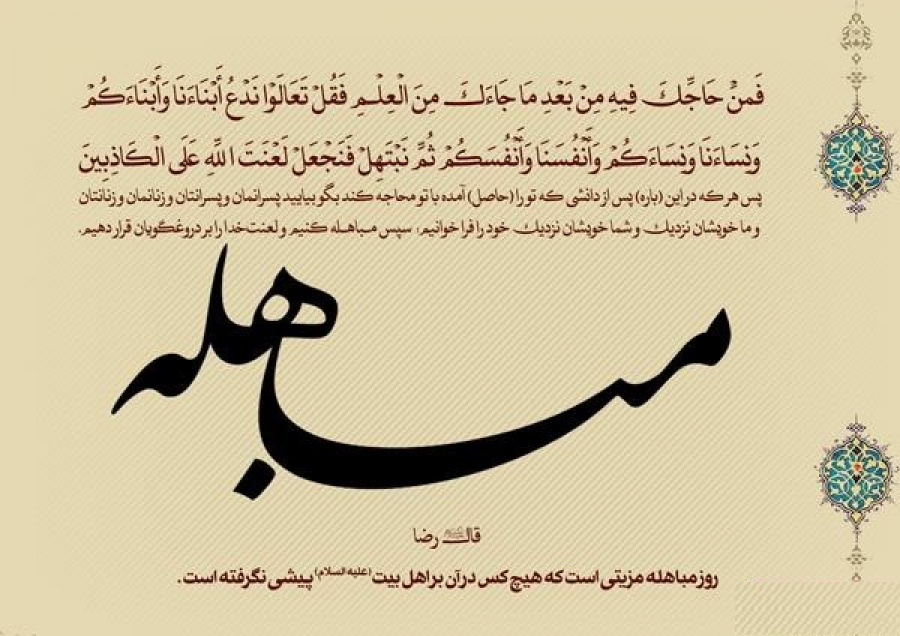 فَمَنْ حَاجَّكَ فِيهِ مِنْ بَعْدِ مَا جَاءَكَ مِنَ الْعِلْمِ فَقُلْ تَعَالَوْا نَدْعُ أَبْنَاءَنَا وَأَبْنَاءَكُمْ
وَنِسَاءَنَا وَنِسَاءَكُمْ وَأَنْفُسَنَا وَأَنْفُسَكُمْ ثُمَّ نَبْتَهِلْ فَنَجْعَلْ لَعْنَتَ اللَّهِ عَلَى الْكَاذِبِينَ
پس هر که در این (باره) پس از دانشی که تو را (حاصل) آمده با تو محاجه کند بگو بیایید پسرانمان و پسرانتان و زنانمان و زنانتان
و ما خویشان نزدیک و شما خویشان نزدیک خود را فرا خوانیم؛ سپس مباهله کنیم و لعنت خدا را بر دروغگویان قرار دهیم.
مباهله
قال رضا
روز مباهله مزیتی است که هیچ کس در آن بر اهل بیت (علیه السلام) پیشی نگرفته است.